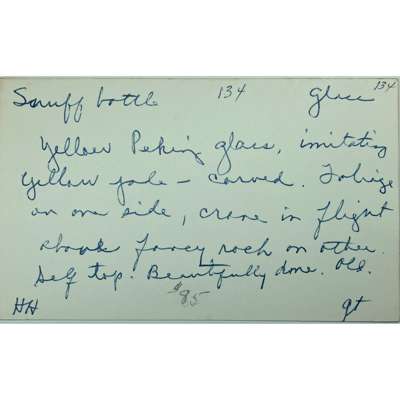 134
Snuff bottle 134 Glass
Yellow Peking glass, imitating
yellow jade - carved. Foliage
on one side, crane in flight
above fancy rock on other.
Self top. Beautifully done. Old.
$85
HH gt